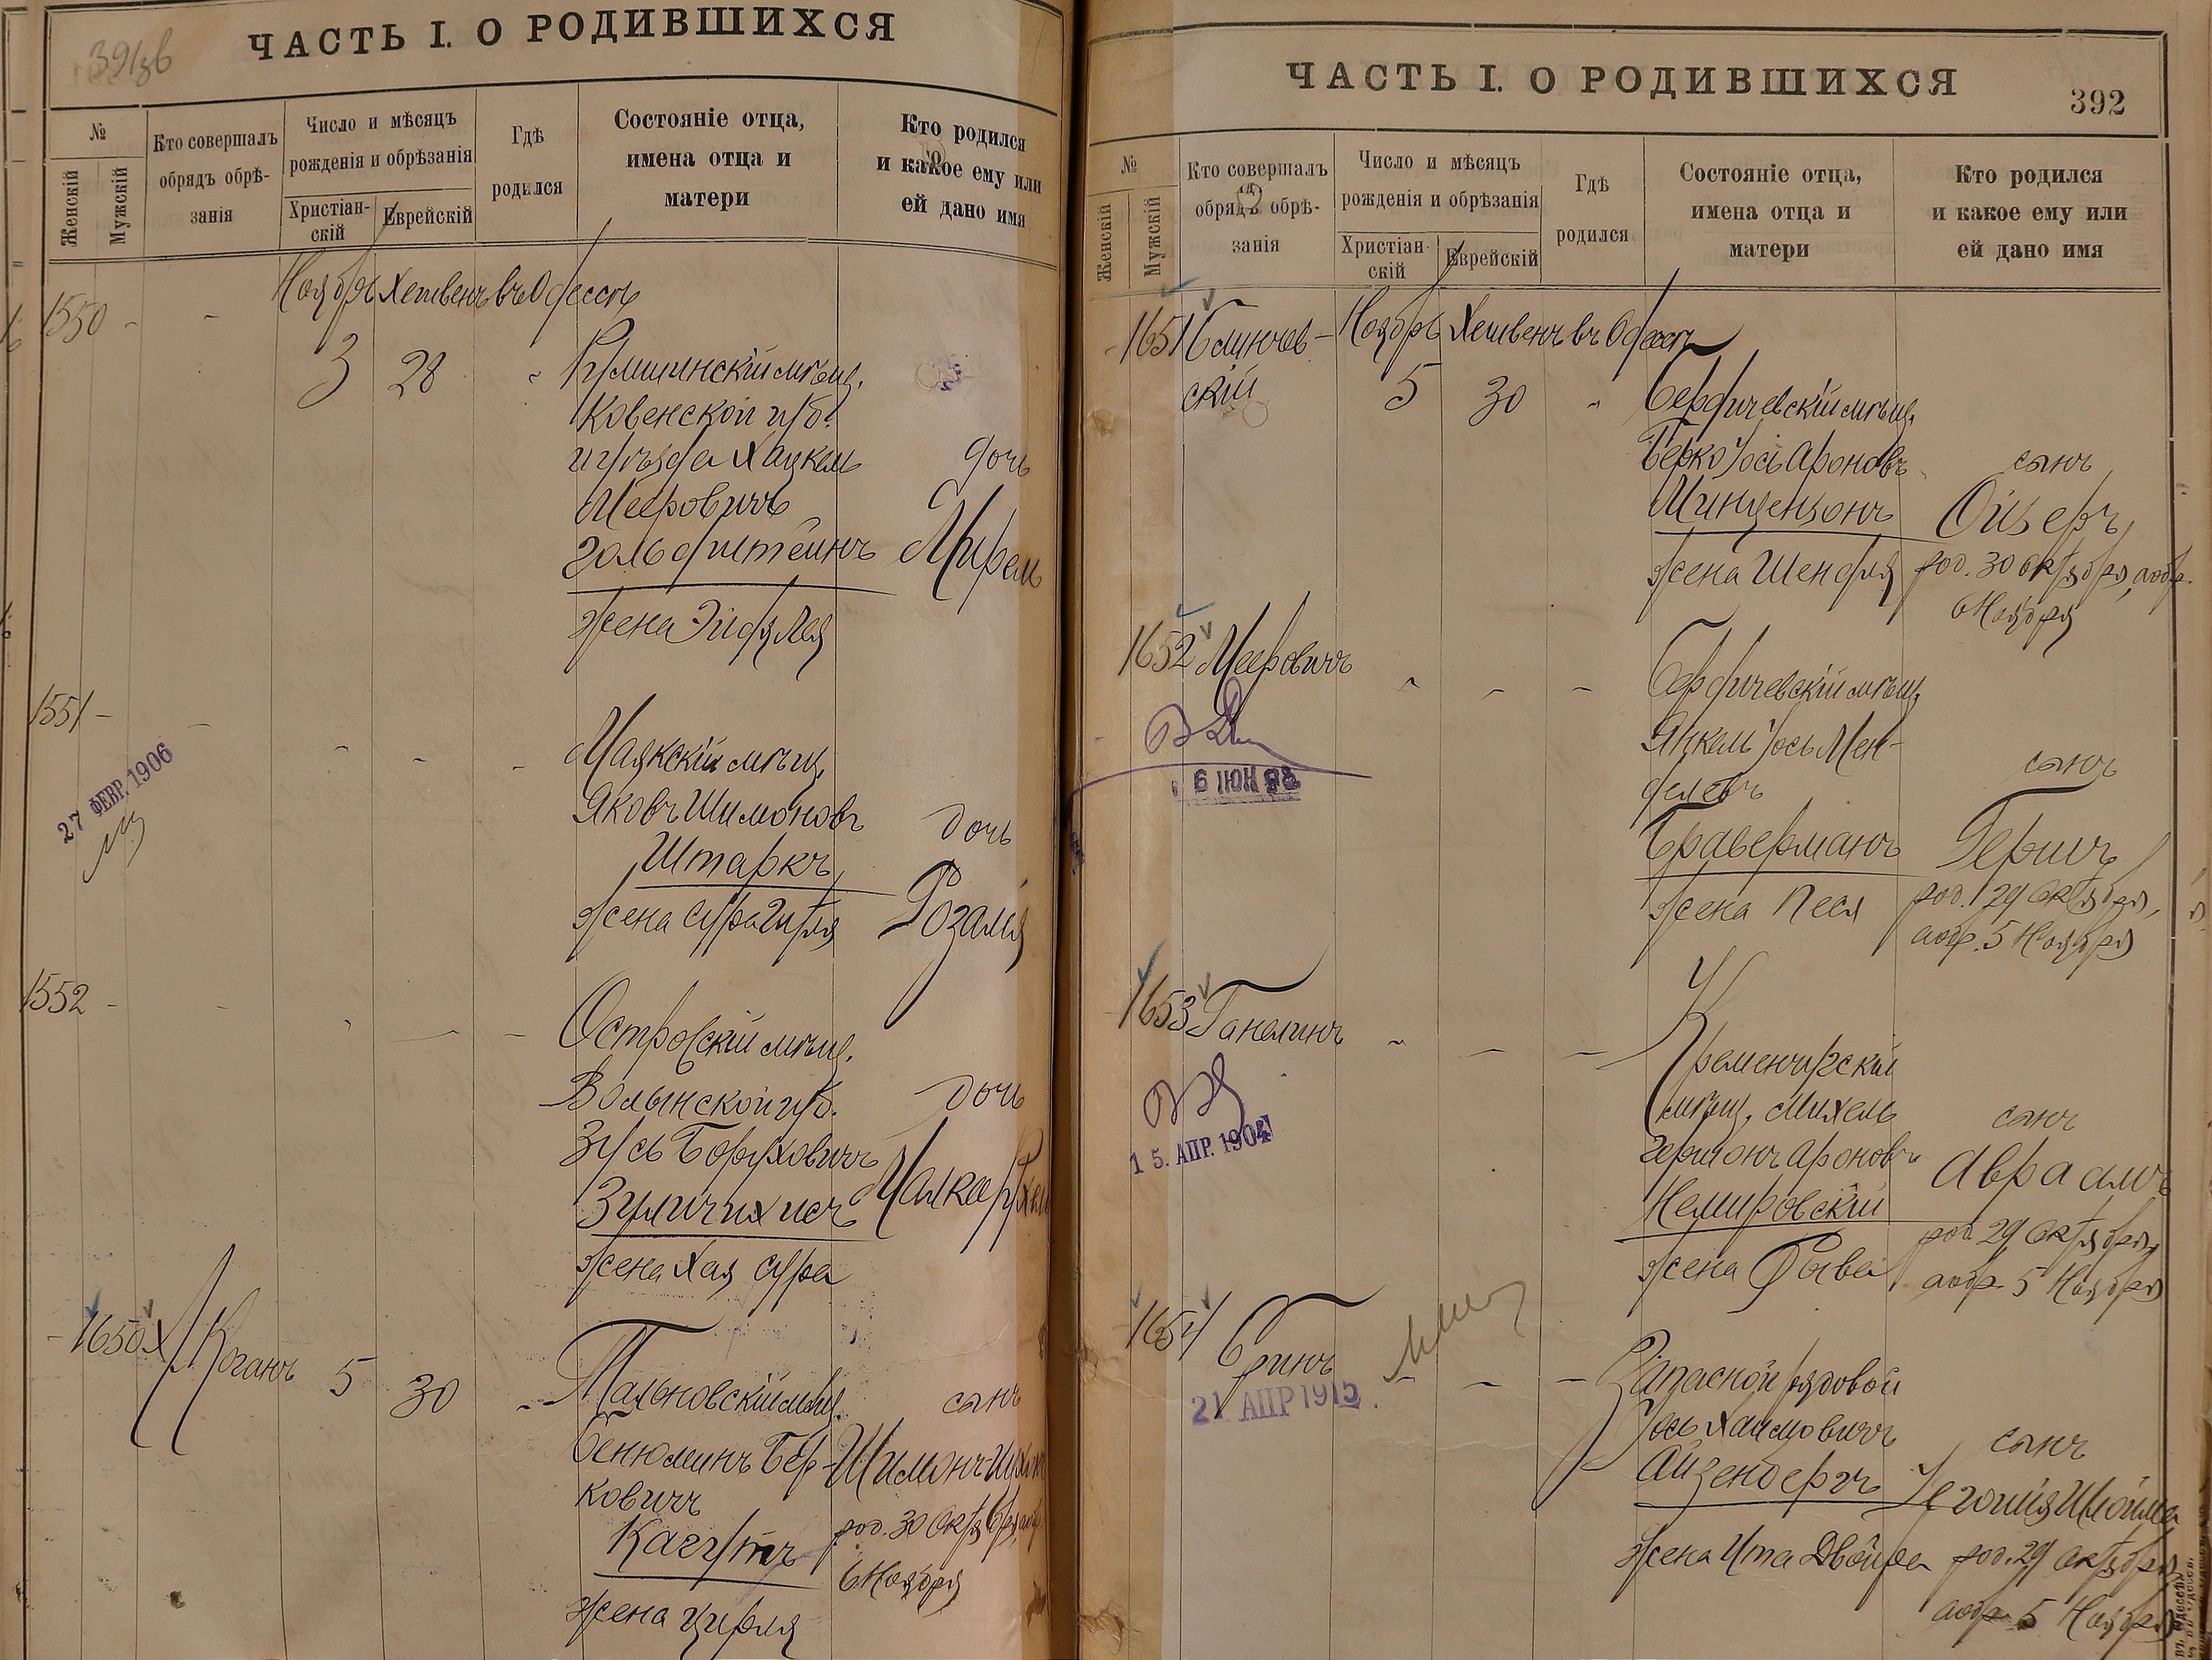 391об
ЧАСТЬ I. О РОДИВШИХСЯ
№
Женскій
Мужскій
Кто совершалъ
обрядъ обрѣ-
занія
Число и мѣсяцъ
рожденія и обрѣзанія
Христіан-
скій
Еврейскій
Гдѣ
родился
Состояніе отца,
имена отца и
матери
Кто родился
и какое ему или
ей дано имя
1550 - - Ноябрь Хешвенъ въ Одессѣ
3 28 "
мѣщ.
Ковенской губ.
и уѣзда Хацкель
Мееровичъ
Гольдштейнъ
жена Эйдля Лея
дочь
Мирель
1551 - - - - -
27 ФЕВР. 1906
Маякскій мѣщ.
Яковъ Шимоновъ
Штаркъ
жена Сура Гитля
дочь
Розалія
1552 - - - - -
Островскій мѣщ.
Волынской губ.
Зусь Боруховичъ
жена Хая Сура
дочь
Малка Рухель
- 1650 Коганъ 5 30 -
Тальновскій мѣщ.
Бенюминъ Бер-
ковичъ
жена Цирля
сынъ
род. 30 Октября, а обр.
6 Ноября
ЧАСТЬ I. О РОДИВШИХСЯ
392
№
Женскій
Мужскій
Кто совершалъ
обрядъ обрѣ-
занія
Число и мѣсяцъ
рожденія и обрѣзанія
Христіан-
скій
Еврейскій
Гдѣ
родился
Состояніе отца,
имена отца и
матери
Кто родился
и какое ему или
ей дано имя
1651 Блинчев- Ноябрь Хешвенъ въ Одессѣ
скій 5 30 "
Бердичевскій мѣщ.
Берко Іось Ароновъ
Минцензонъ
жена Шендля
сынъ
Ойзеръ
род. 30 Октября, а обр.
6 Ноября
1652 Мееровичъ - - -
6 ІЮН 98
Бердичевскій мѣщ.
Янкель Іось Мен-
делевъ
Браверманъ
жена Песя
сынъ
Гершъ
род. 29 Октября,
а обр. 5 Ноября
1653 Ганелинъ - - -
15. АПР. 1904
Кременчугскій
мѣщ. Михель
Гершонъ Ароновъ
Немировскій
жена Рыва
сынъ
Авраамъ
род. 29 Октября,
а обр. 5 Ноября
1654 Гринъ - - -
21 АПР 1915
Запасной рядовой
Іось Хаимовичъ
Айзенбергъ
жена Ита Двойра
сынъ
Іегошія Шлойма
род. 29 Октября,
а обр. 5 Ноября